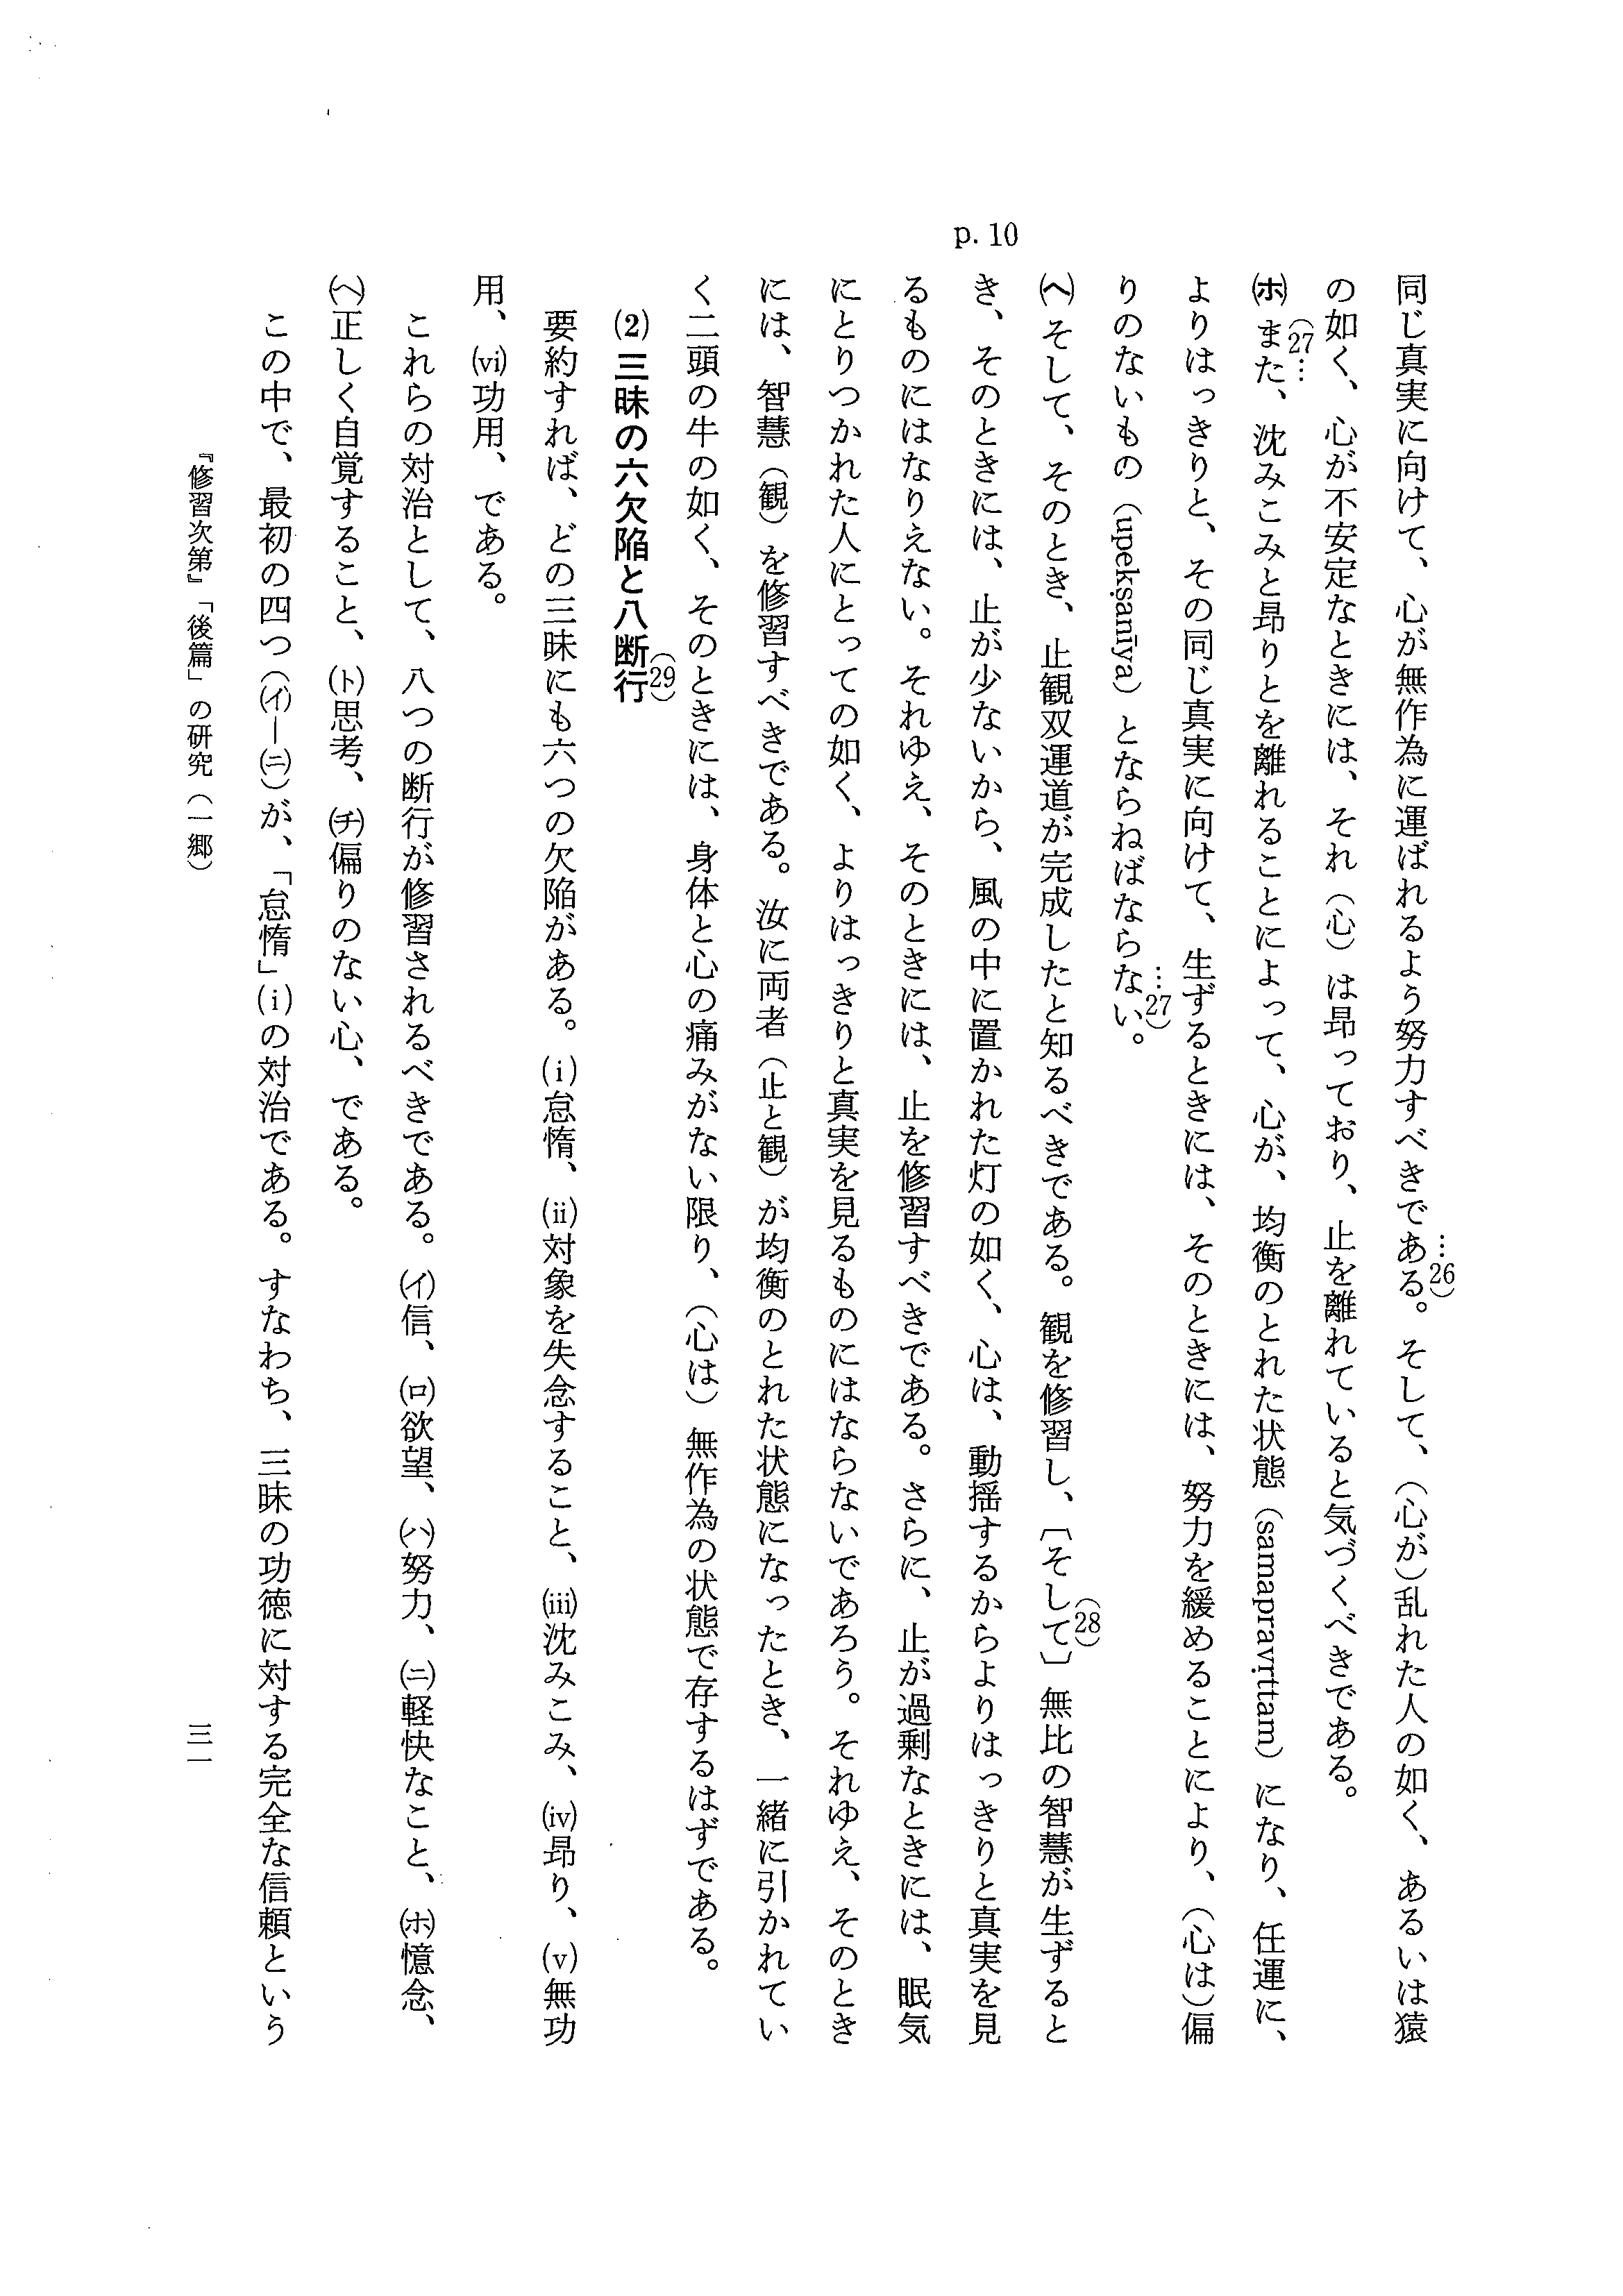 p. 10
同じ真実に向けて、心が無作為に運ばれるよう努力すべきである…26)。そして、(心が)乱れた人の如く、あるいは猿
の如く、心が不安定なときには、それ(心)は昂っており、止を離れていると気づくべきである。
(ホ) (27…また、沈みこみと昂りとを離れることによって、心が、均衡のとれた状態(samapravṛttam)になり、任運に、
よりはっきりと、その同じ真実に向けて、生ずるときには、そのときには、努力を緩めることにより、(心は)偏
りのないもの(upekṣaṇīya)とならねばならない…27)。
(ヘ) そして、そのとき、止観双運道が完成したと知るべきである。観を修習し、〔そして〕(28) 無比の智慧が生ずると
き、そのときには、止が少ないから、風の中に置かれた灯の如く、心は、動揺するからよりはっきりと真実を見
るものにはなりえない。それゆえ、そのときには、止を修習すべきである。さらに、止が過剰なときには、眠気
にとりつかれた人にとっての如く、よりはっきりと真実を見るものにはならないであろう。それゆえ、そのとき
には、智慧(観)を修習すべきである。汝に両者(止と観)が均衡のとれた状態になったとき、一緒に引かれてい
く二頭の牛の如く、そのときには、身体と心の痛みがない限り、(心は)無作為の状態で存するはずである。
(2) 三昧の六欠陥と八断行(29)
要約すれば、どの三昧にも六つの欠陥がある。(i)怠惰、(ii)対象を失念すること、(iii)沈みこみ、(iv)昂り、(v)無功
用、(vi)功用、である。
これらの対治として、八つの断行が修習されるべきである。(イ)信、(ロ)欲望、(ハ)努力、(ニ)軽快なこと、(ホ)憶念、
(ヘ)正しく自覚すること、(ト)思考、(チ)偏りのない心、である。
この中で、最初の四つ((イ)―(ニ))が、「怠惰」(i)の対治である。すなわち、三昧の功徳に対する完全な信頼という
『修習次第』「後篇」の研究(一郷)
三一